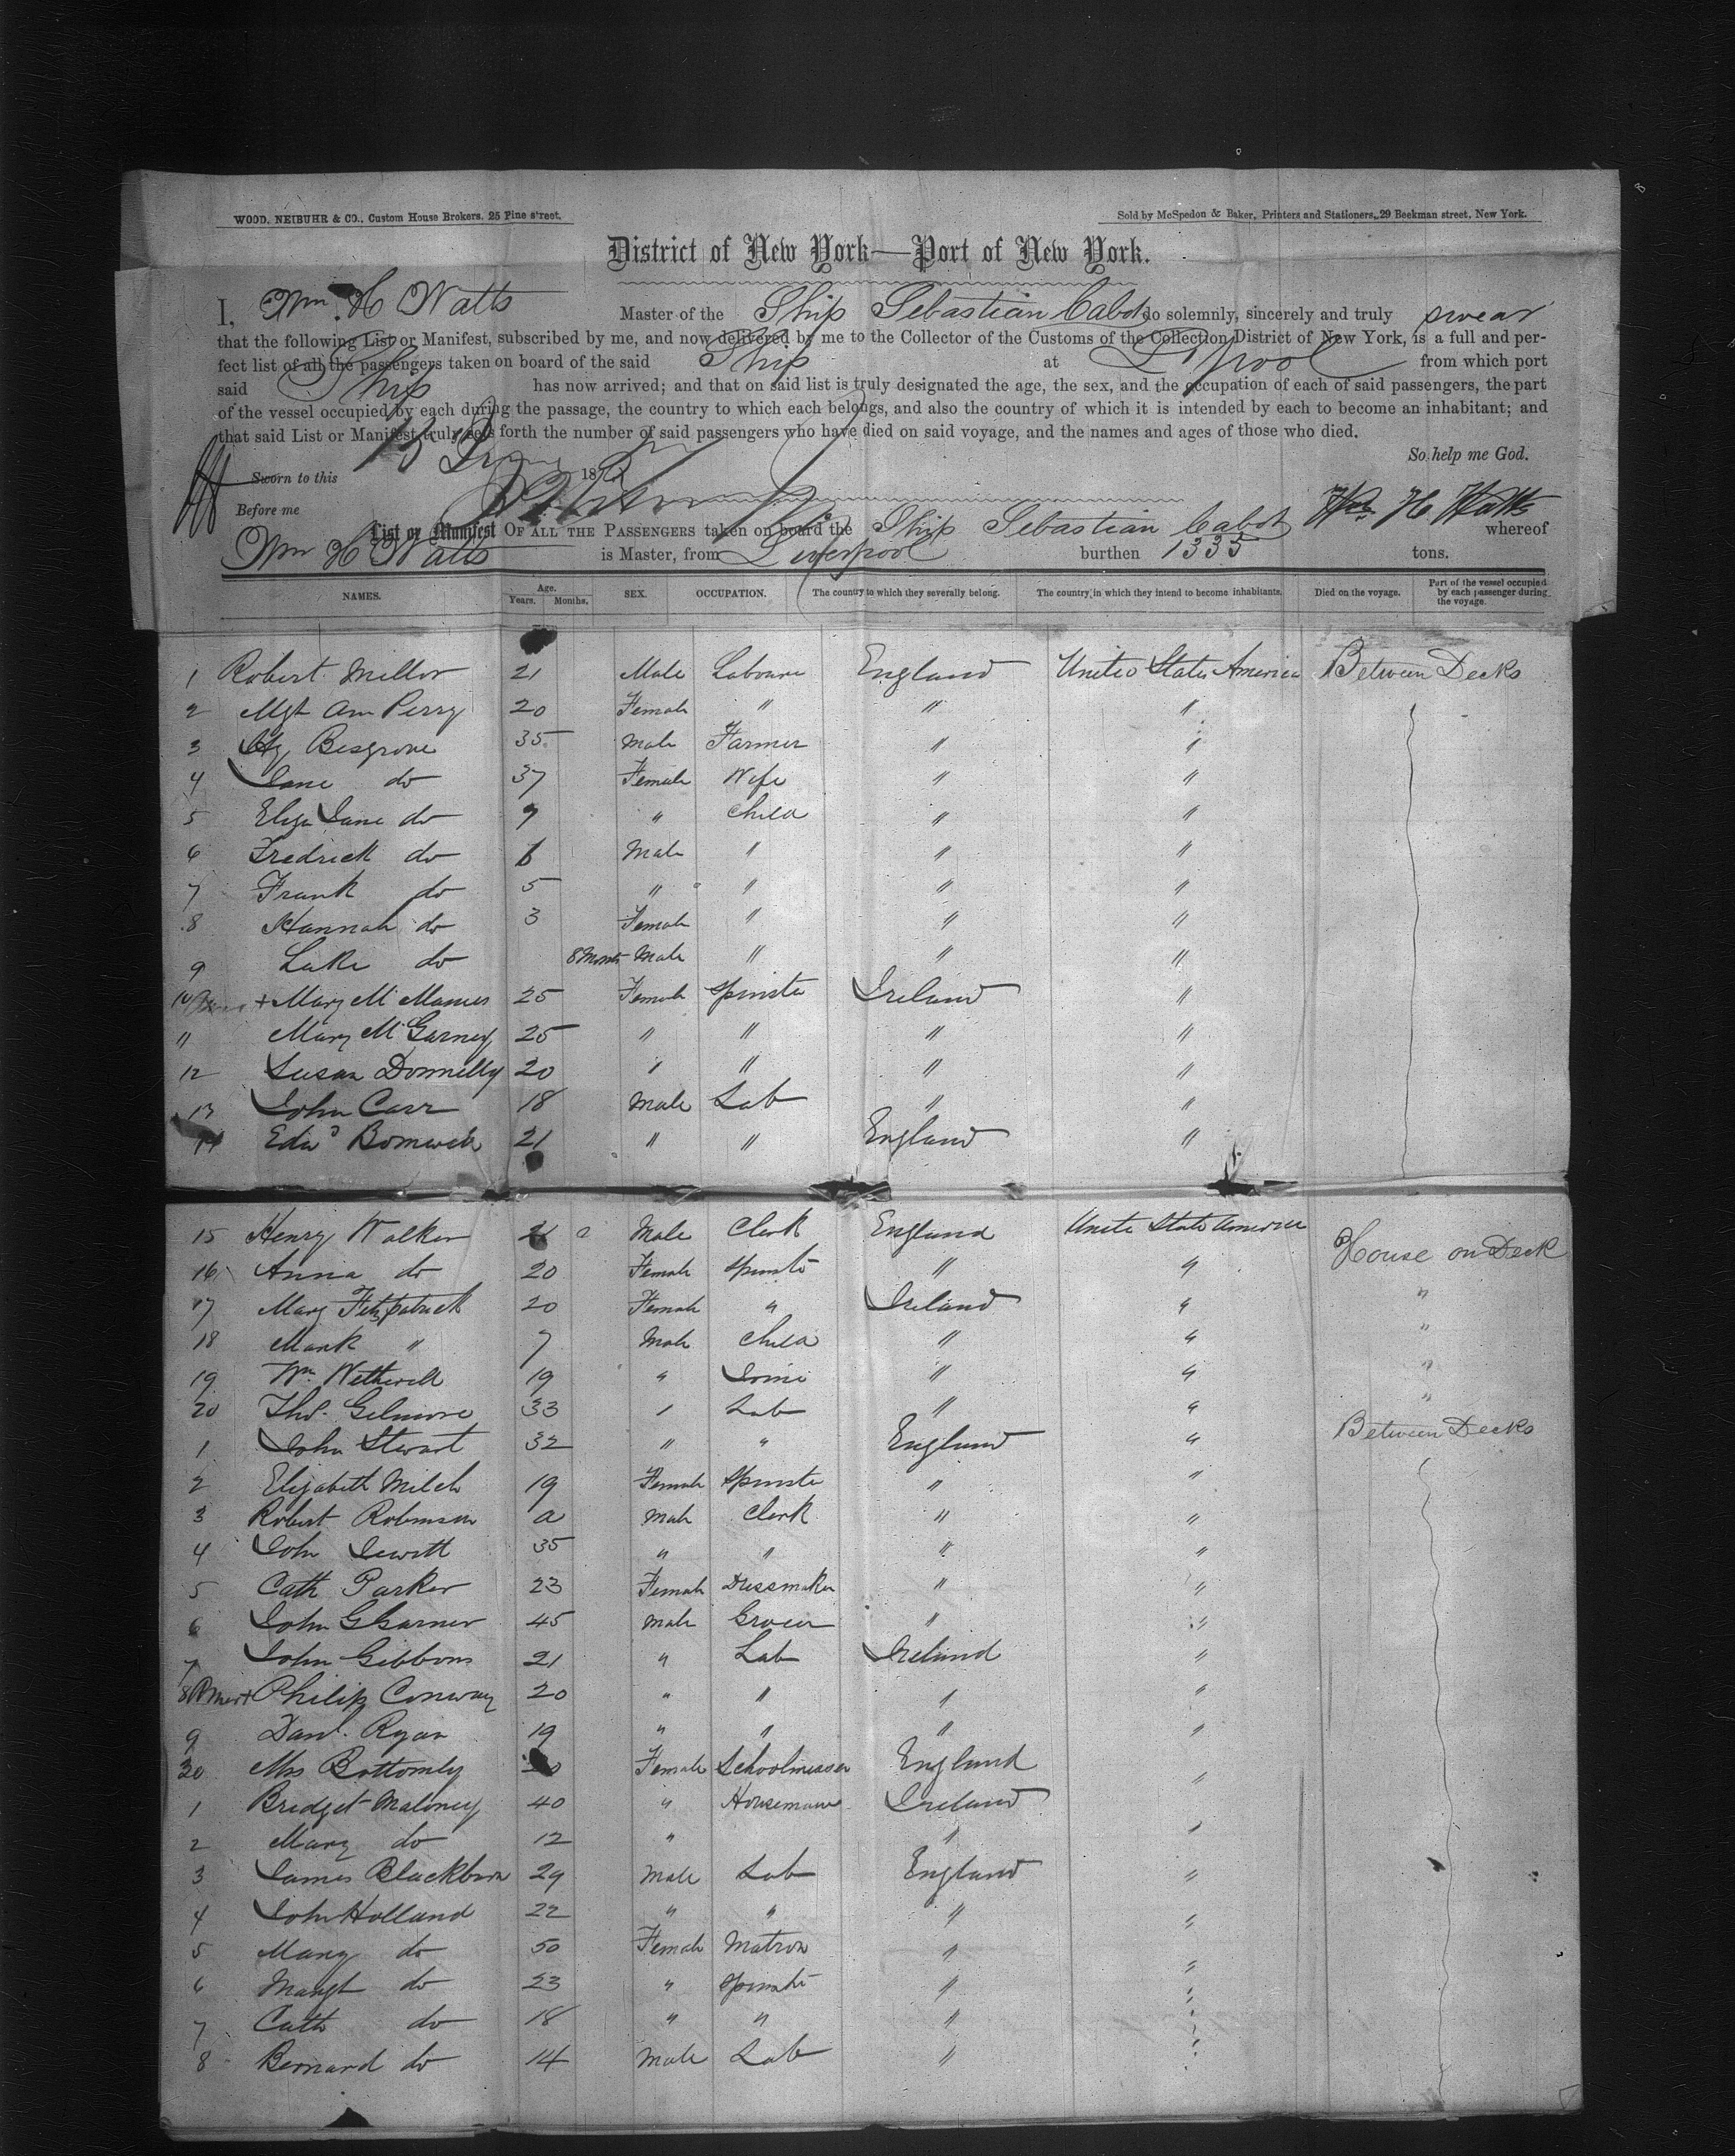 WOOD, NEIBUHR & CO., Custom House Brokers, 25 Pine street.
Sold by McSpedon & Baker, Printers and Stationers, 29 Beekman street, New York.
District of New York—Port of New York.
I, Wm H Watts Master of the Ship Sebastian Cabot do solemnly, sincerely and truly swear
that the following List or Manifest, subscribed by me, and now delivered by me to the Collector of the Customs of the Collection District of New York, is a full and per-
fect list of all the passengers taken on board of the said Ship at L'pool from which port
said Ship has now arrived; and that on said list is truly designated the age, the sex, and the occupation of each of said passengers, the part
of the vessel occupied by each during the passage, the country to which each belongs, and also the country of which it is intended by each to become an inhabitant; and
that said List or Manifest truly sets forth the number of said passengers who have died on said voyage, and the names and ages of those who died.
So help me God.
Sworn to this 187
Before me Wm H Watts
List or Manifest OF ALL THE PASSENGERS taken on board the Ship Sebastian Cabot whereof
Wm H Watts is Master, from Liverpool burthen 1335 tons.
NAMES. Age. Years. Months. SEX. OCCUPATION. The country to which they severally belong. The country in which they intend to become inhabitants. Died on the voyage. Part of the vessel occupied by each passenger during the voyage.
1 Robert Millor 21 Male Laboure England United States America Between Decks
2 Mgt Ann Perry 20 Female " " "
3 Hy Besgrove 35 Male Farmer " "
4 Jane do 37 Female Wife " "
5 Eliza Jane do 9 " Child " "
6 Fredrick do 6 Male " " "
7 Frank do 5 " " " "
8 Hannah do 3 Female " " "
9 Luke do 8 Months Male " " "
10 + Mary Mc Manus 25 Female Spinste Ireland "
11 Mary Mc Garney 25 " " " "
12 Susan Donnelly 20 " " " "
13 John Carr 18 Male Lab " "
14 Edwd Bomwick 21 " " England "
15 Henry Walker Male Clerk England Unite State America House on Deck
16 Anna do 20 Female Spinste " " "
17 Mary Fitzpatrick 20 Female " Ireland " "
18 Mark " 7 Male Child " " "
19 Wm Wetherell 19 " " " "
20 Thos. Gilmore 33 " Lab " "
1 John Stewart 32 " " England " Between Decks
2 Elizabeth Milch 19 Female Spinste " "
3 Robert Robinson a Male Clerk " "
4 John Jewitt 35 " " " "
5 Cath Parker 23 Female Dressmaker " "
6 John G Garner 45 Male Grocer " "
7 John Gibbons 21 " Lab Ireland "
8 + Philip Conway 20 " " " "
9 Danl. Ryan 19 " " " "
30 Mrs Bottomly Female England "
1 Bridget Maloney 40 " Ireland
2 Mary do 12 " " "
3 James Blackburn 29 Male Lab England "
4 John Holland 22 " " " "
5 Mary do 50 Female Matron " "
6 Margt do 23 " Spinste " "
7 Cath do 18 " " " "
8 Bernard do 14 Male Lab " "